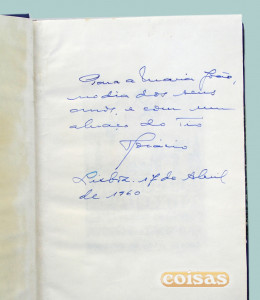 Para a Maria João,
no dia dos seus
anos, e com um
abraço do Tio
Horácio
Lisboa, 17 de Abril
de 1960
coisas